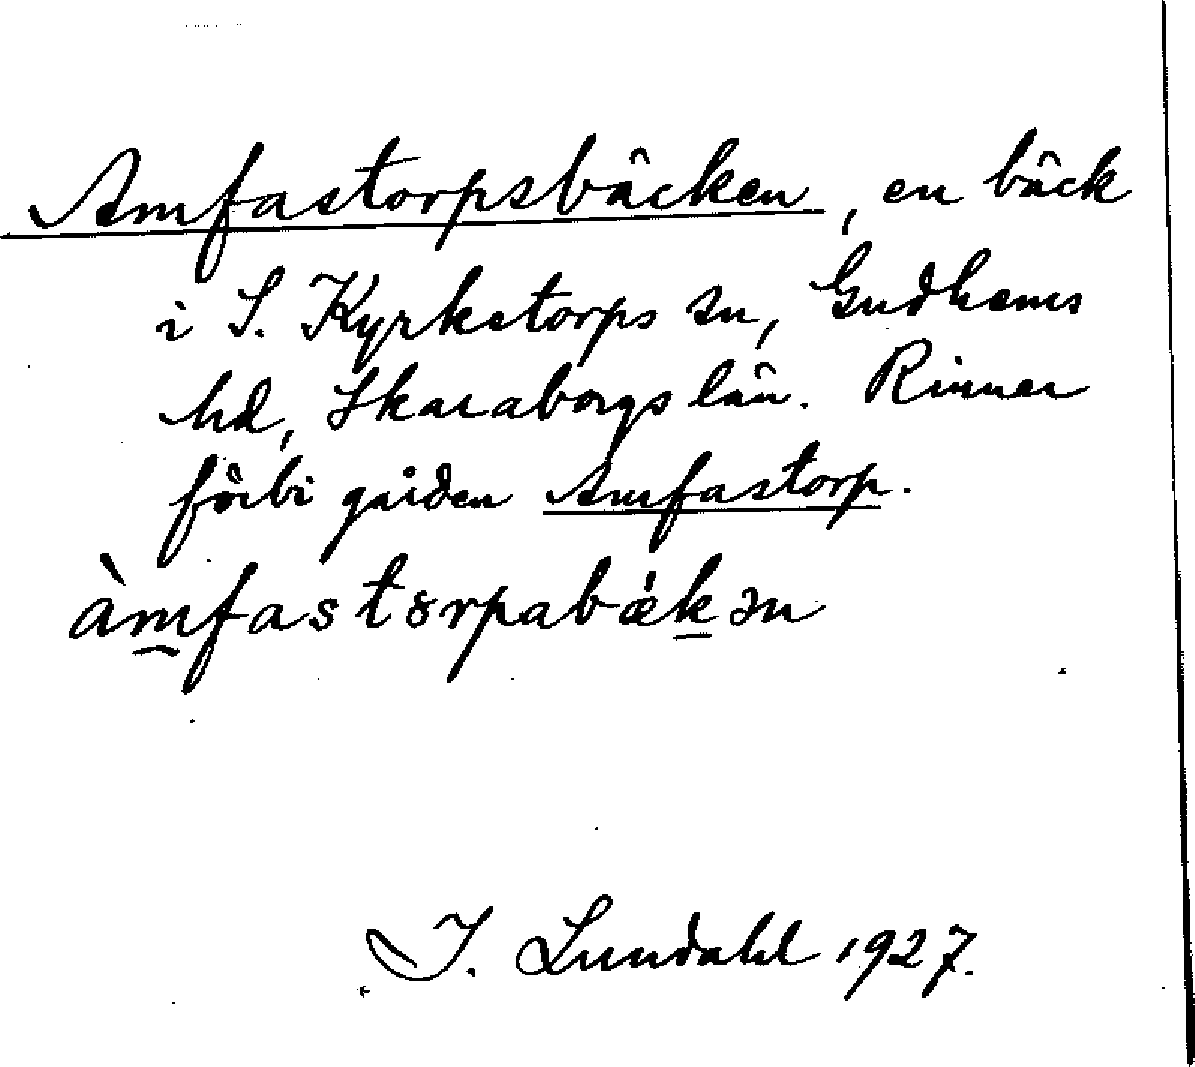 Amfastorpsbäcken, en bäck
i S. Kyrketorps sn, Gudhems
hd, Skaraborgs län. Rinner
förbi gården Amfastorp.
àm̲fastɤrpabǽk̲ən
I. Lundahl 1927.